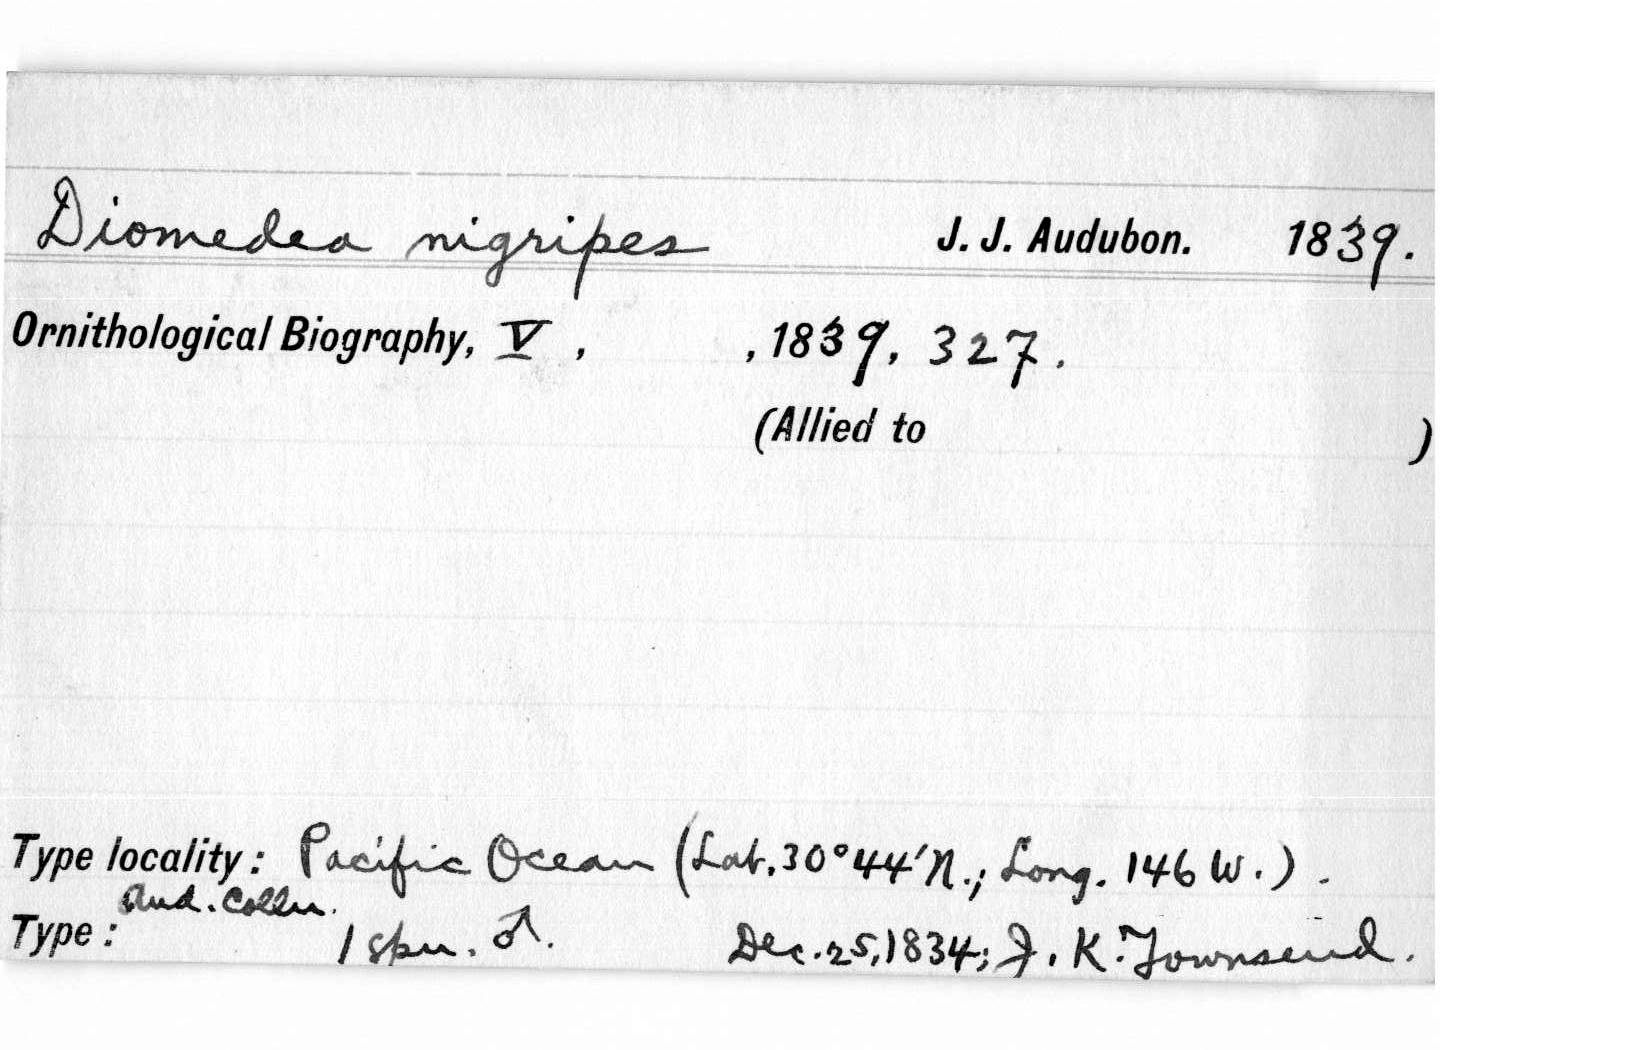 Diomedea nigripes J. J. Audubon. 1839.
Ornithological Biography, V , , 1839, 327.
(Allied to )
Type locality: Pacific Ocean (Lat. 30°44'N.; Long. 146 W.).
Aud. Colln.
Type: 1 spn. ♂. Dec. 25, 1834; J. K. Townsend.